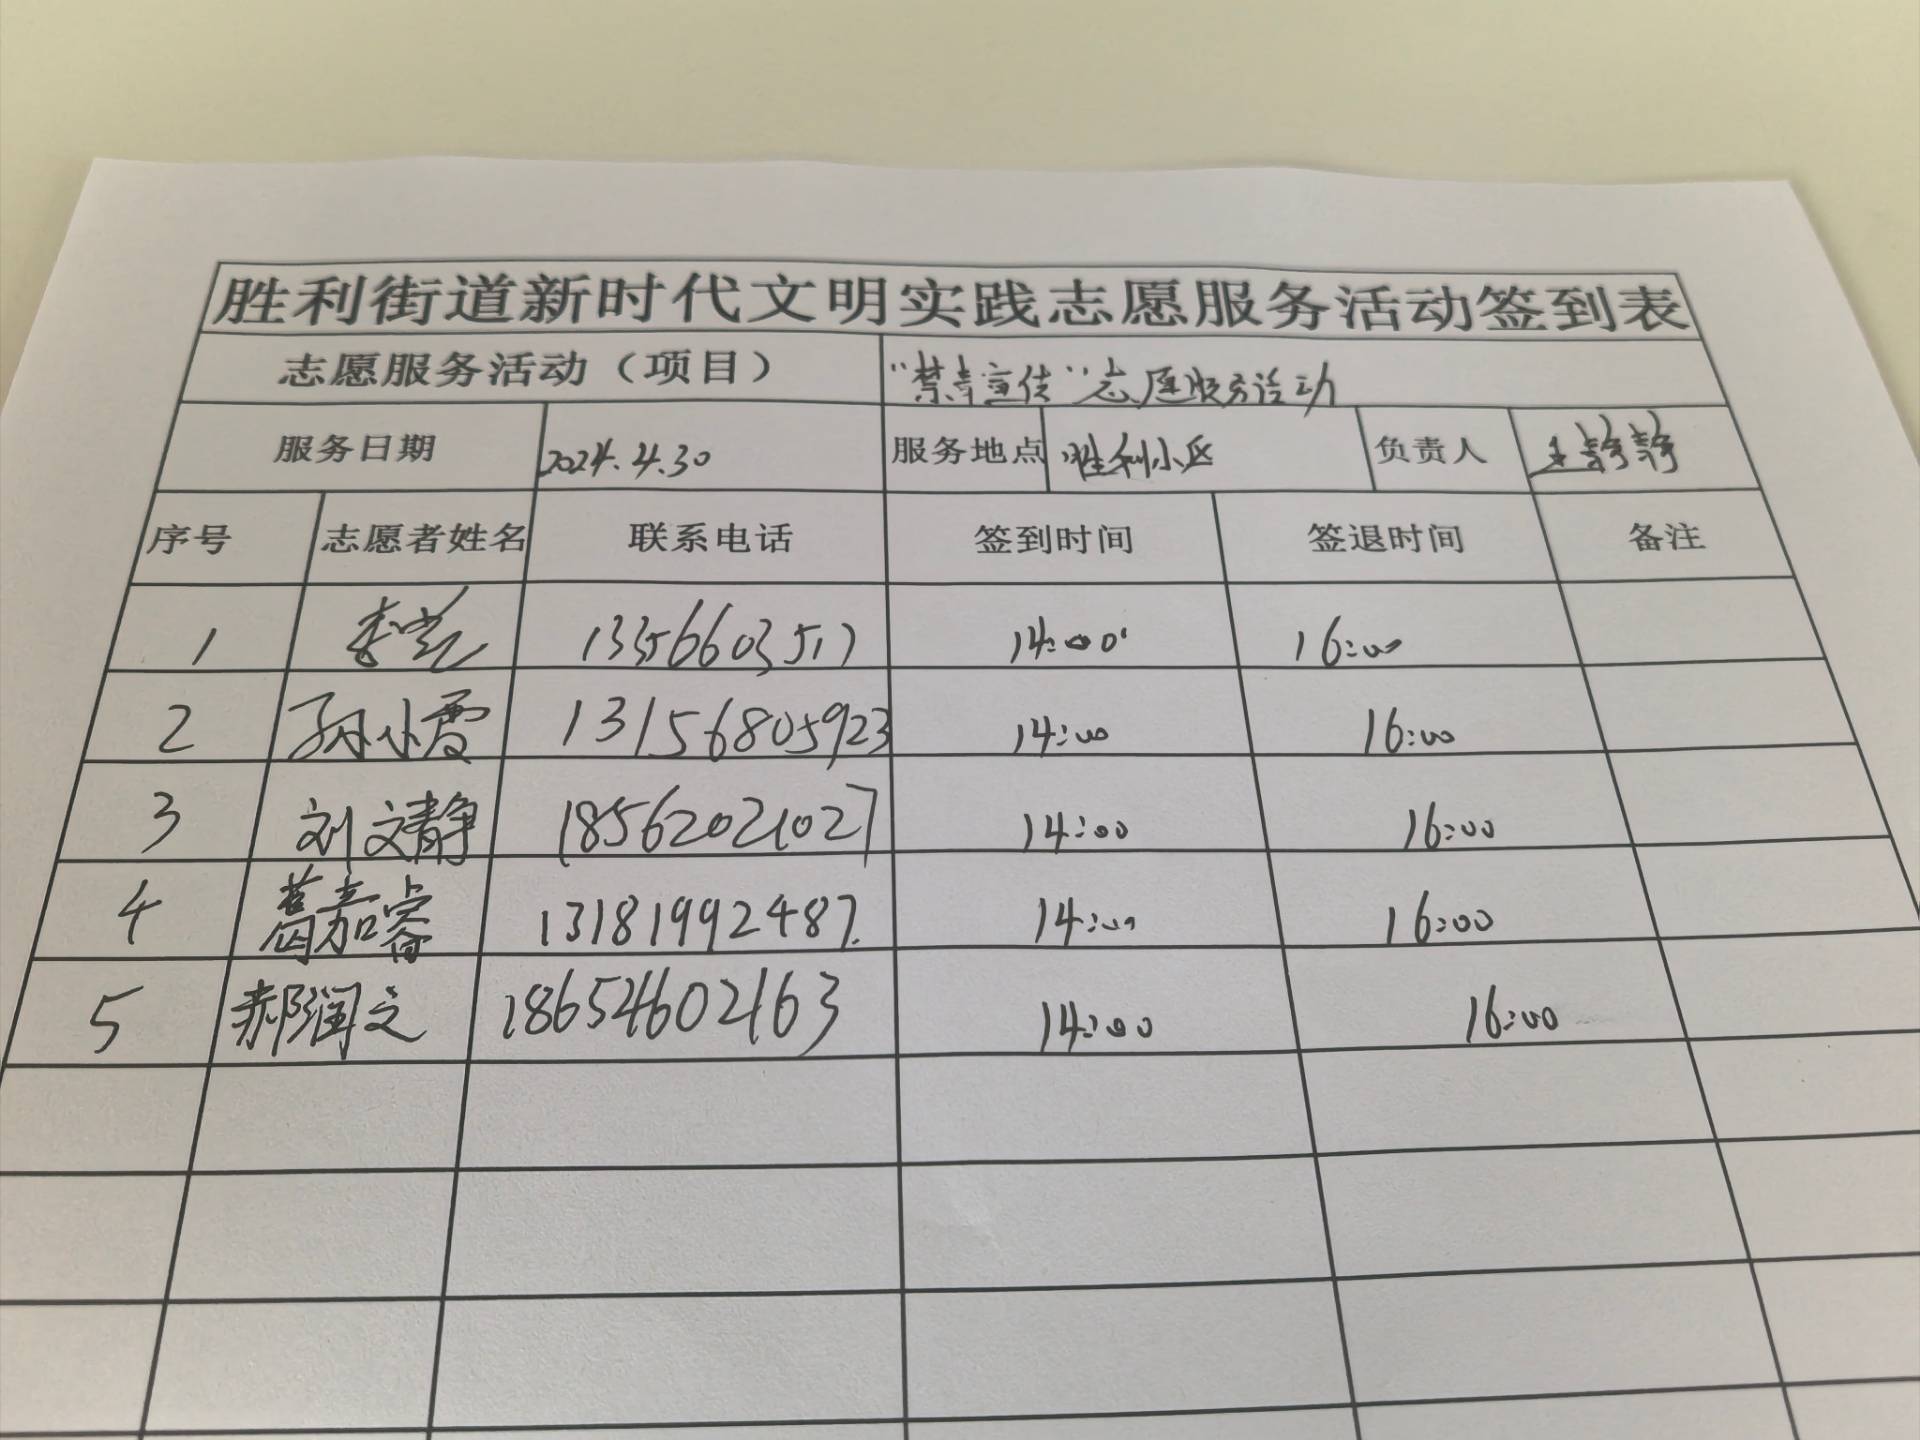 胜利街道新时代文明实践志愿服务活动签到表
志愿服务活动（项目） “禁毒宣传”志愿服务活动
服务日期 2024.4.30 服务地点 胜利小区 负责人 王静静
序号 志愿者姓名 联系电话 签到时间 签退时间 备注
1 13356603517 14:00 16:00
2 孙小霞 13156805923 14:00 16:00
3 刘文静 18562021027 14:00 16:00
4 葛嘉睿 13181992487 14:00 16:00
5 郝润之 18654602163 14:00 16:00